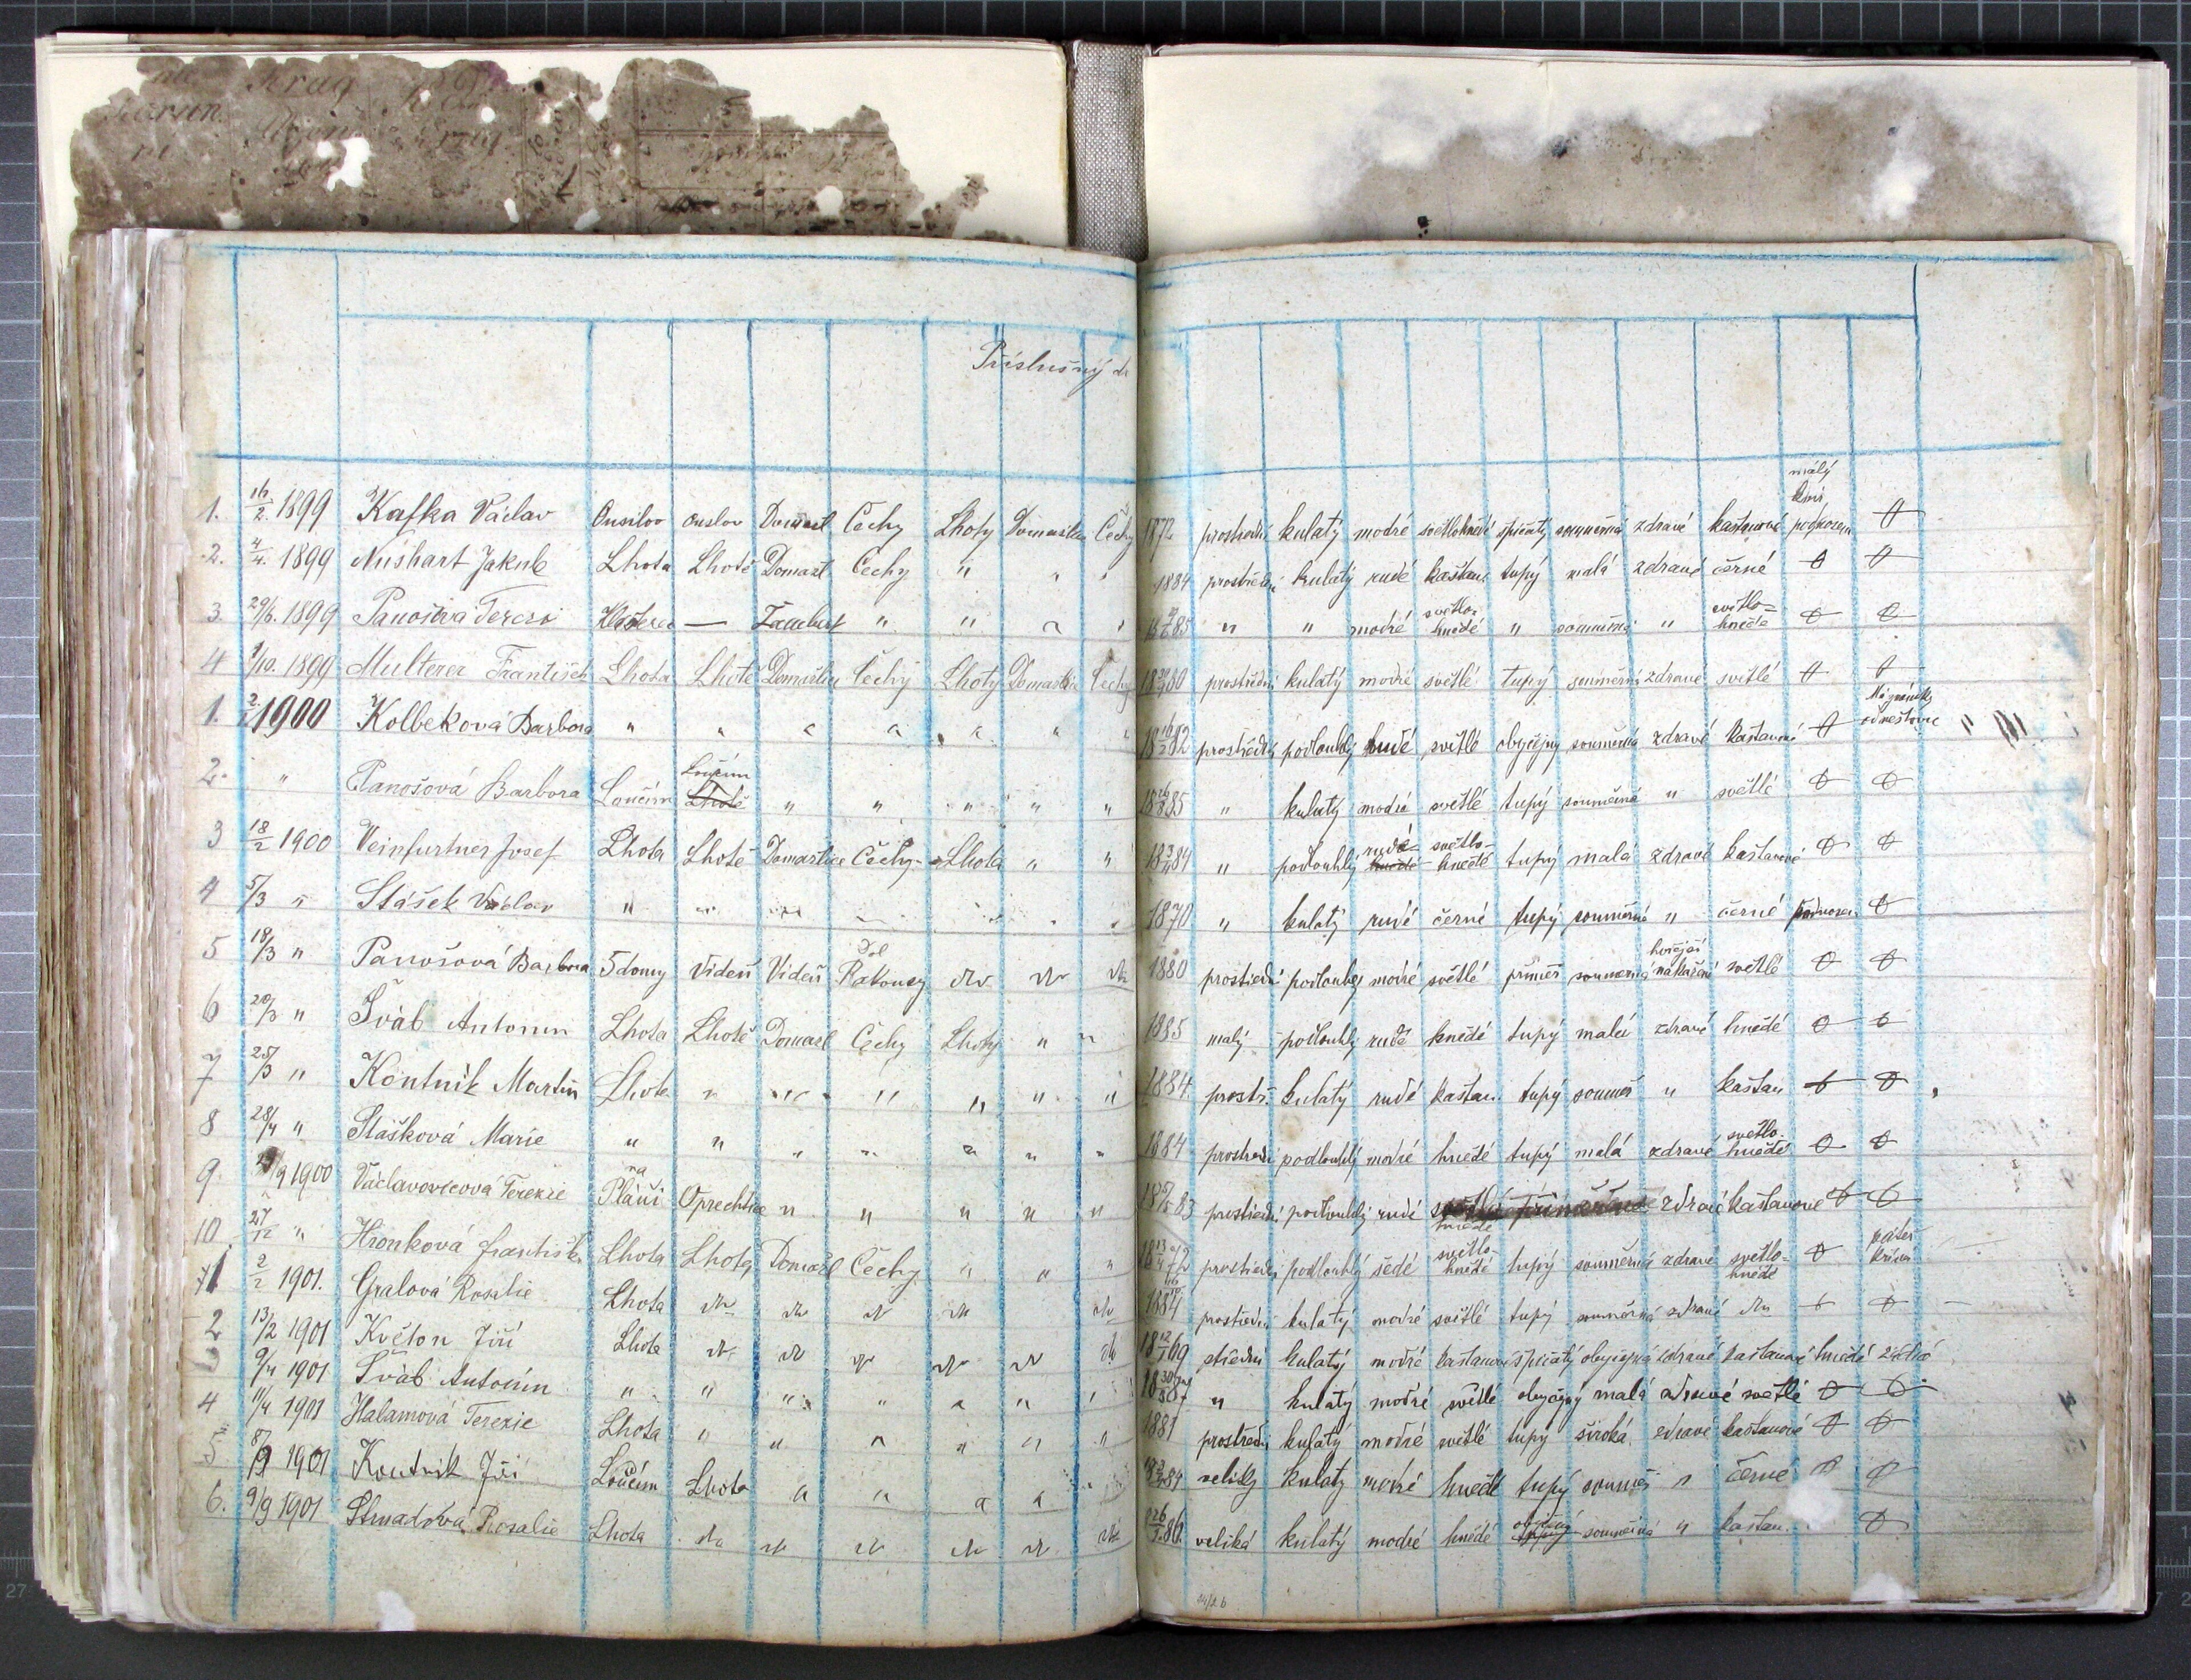 Krug
Příslušný do
1. 16/2. 1899 Kafka Václav Onsilov Onslov Domažl Čechy Lhoty Domažlice Čechy 1872 prostředn kulatý modré světlohnědé špičatý souměrná zdravé kaštanové malý knír podnosem 0
2. 4/4. 1899 Nushart Jakub Lhota Lhotě Domažl. Čechy " " " 1884 prostřední kulatý rudé kaštan. tupý malá zdravé černé 0 0
3. 29/6. 1899 Panošova Terezi — Žamberk " " " " 85 " " modré světlo-hnědé " souměrná " světlo=hnědé 0 0
4 1/10. 1899 Multerer František Lhota Lhotě Domažlice Čechy Lhoty Domažlice Čechy 1880 prostřední kulatý modré světlé tupý souměrná zdravé světlé 0 0
1. 1900 Kolbeková Barbora " " " " " " " 1882 prostřední podlouhlý rudé světlé obyčejný souměrná zdravé kaštanové 0 "
2. " Panošová Barbora Loučim Loučim Lhotě " " " " " 1885 " kulatý modré světlé tupý souměrná " světlé 0 0
3 18/2 1900 Veinfurtner Josef Lhota Lhotě Domažlice Čechy Lhota " " 1884 " podlouhlý rudé hnědé světlo-hnědé tupý malá zdravé kaštanové 0 0
4 5/3 " Stášek Václav " " " " " " " 1870 " kulatý rudé černé tupý souměrná " černé 0
5 18/3 " Panošová Barbora 5domy Videň Videň Dol Rakousy dto dto dto 1880 prostřední podlouhlý modré světlé přiměř souměrná hořejší nakažené světlé 0 0
6 20/3 " Šváb Antonín Lhota Lhotě Domažl Čechy Lhoty " " 1885 malý podlouhlý rudé hnědé tupý malá zdravé hnědé 0 0
7 25/3 " Kontnik Martin Lhota " " " " " " 1884. prostř. kulatý rudé kaštan. tupý souměř " kaštan 0 0
8 28/4 " Stašková Marie " " " " " " " 1884 prostřední podlouhlý modré hnědé tupý malá zdravé světlo-hnědé 0 0
9 /9 1900 Václavovicová Terezie na Pláni Oprechtice " " " " " 1883 prostřední podlouhlý rudé hnědé zdravé kaštanové 0 0
10 27/12 " Hronková Františk. Lhota Lhota Domažl Čechy " " " 18 72 prostřední podlouhlý šedé světlo-hnědé tupý souměrná zdravé světlo-hnědé 0 páteř křivá
1 2/2 1901. Gralová Rosalie Lhota dto dto dto dto dto 1884 prostřední kulatý modré světlé tupý souměrná zdravé dto 0 0
2 13/2 1901 Květon Jiří Lhota dto dto dto dto dto dto 1869 střední kulatý modré kaštanové špičatý obyčejná zdravé kaštanové hnědé
3 9/4 1901 Šváb Antonín " " " " " " " 1887 " kulatý modré světlé obyčejný malá zdravé světlé 0 0
4 11/4 1901 Halamová Terezie Lhota " " " " " " 1881 prostřední kulatý modré světlé tupý široká zdravé kaštanové 0 0
5 8/9 1901 Koutnik Jiří Loučim Lhota " " " " 84 veliký kulatý modré hnědé tupý souměř " černé 0 0
6. 9/9 1901 Strnadová Rosalie Lhota dto dto dto dto dto dto 86. veliká kulatý modré hnědé obyčejný tupý souměrná " kaštan. 0